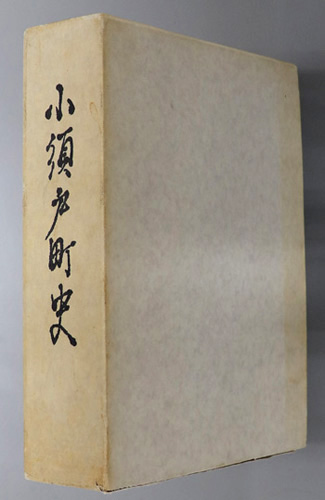 小須戸町史